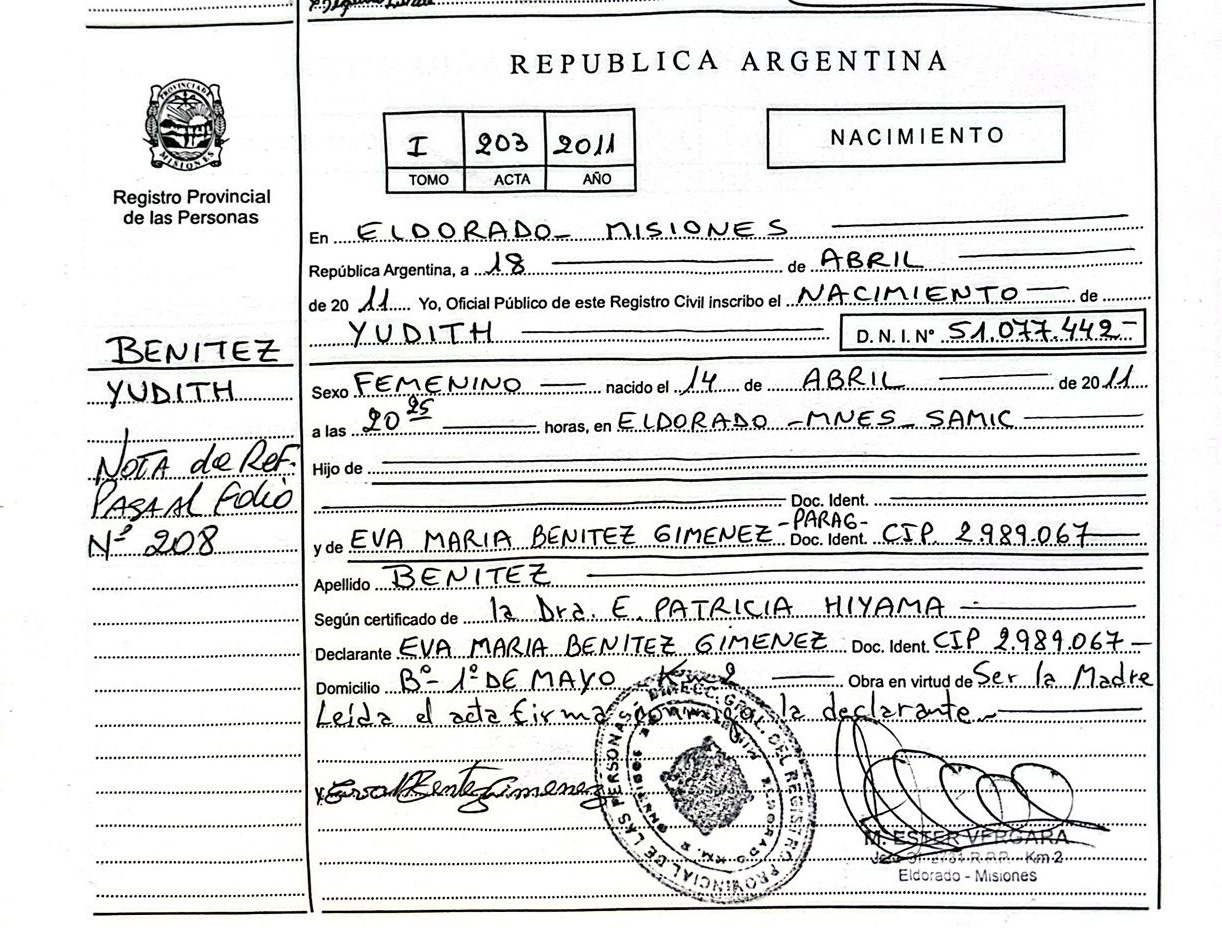 REPUBLICA ARGENTINA
PROVINCIA DE MISIONES
Registro Provincial
de las Personas
I 203 2011
TOMO ACTA AÑO
NACIMIENTO
En ELDORADO_ MISIONES
República Argentina, a 18 de ABRIL
de 20 11 Yo, Oficial Público de este Registro Civil inscribo el NACIMIENTO de
YUDITH D. N. I. Nº 51.077.442-
BENITEZ
YUDITH
Sexo FEMENINO nacido el 14 de ABRIL de 20 11
a las 20 25 horas, en ELDORADO _MNES_ SAMIC
NOTA de Ref.
PASA Al folio
Nº 208
Hijo de
Doc. Ident.
y de EVA MARIA BENITEZ GIMENEZ -PARAG- Doc. Ident. CIP 2.989.067
Apellido BENITEZ
Según certificado de la Dra. E. PATRICIA HIYAMA
Declarante EVA MARIA BENITEZ GIMENEZ Doc. Ident. CIP 2.989.067-
Domicilio Bº- 1º DE MAYO Km 2 Obra en virtud de Ser la Madre
Leída el acta firma conmigo la declarante
DIRECC. GRAL. DEL REGISTRO PROVINCIAL DE LAS PERSONAS
ELDORADO KM. 2
M. ESTER VERGARA
R.P.P. - Km 2
Eldorado - Misiones